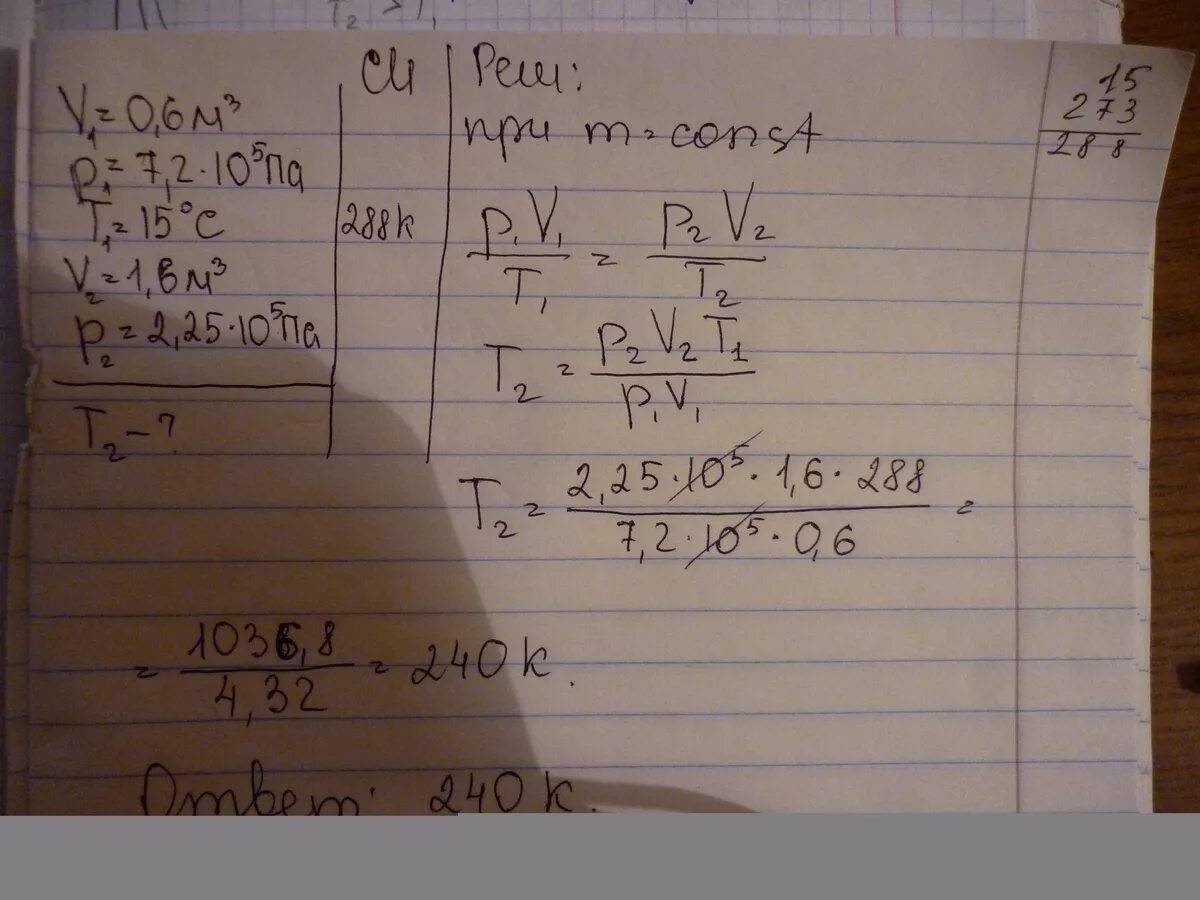 T₂ >
V₁ = 0,6 м³
p₁ = 7,2·10⁵ Па
T₁ = 15°C
V₂ = 1,6 м³
p₂ = 2,25·10⁵ Па
T₂ - ?
СИ
288 К
Реш:
при m = const
p₁V₁ / T₁ = p₂V₂ / T₂
T₂ = p₂V₂T₁ / p₁V₁
T₂ = 2,25·10⁵·1,6·288 / 7,2·10⁵·0,6 =
= 1036,8 / 4,32 = 240 К.
Ответ: 240 К.
15
273
288